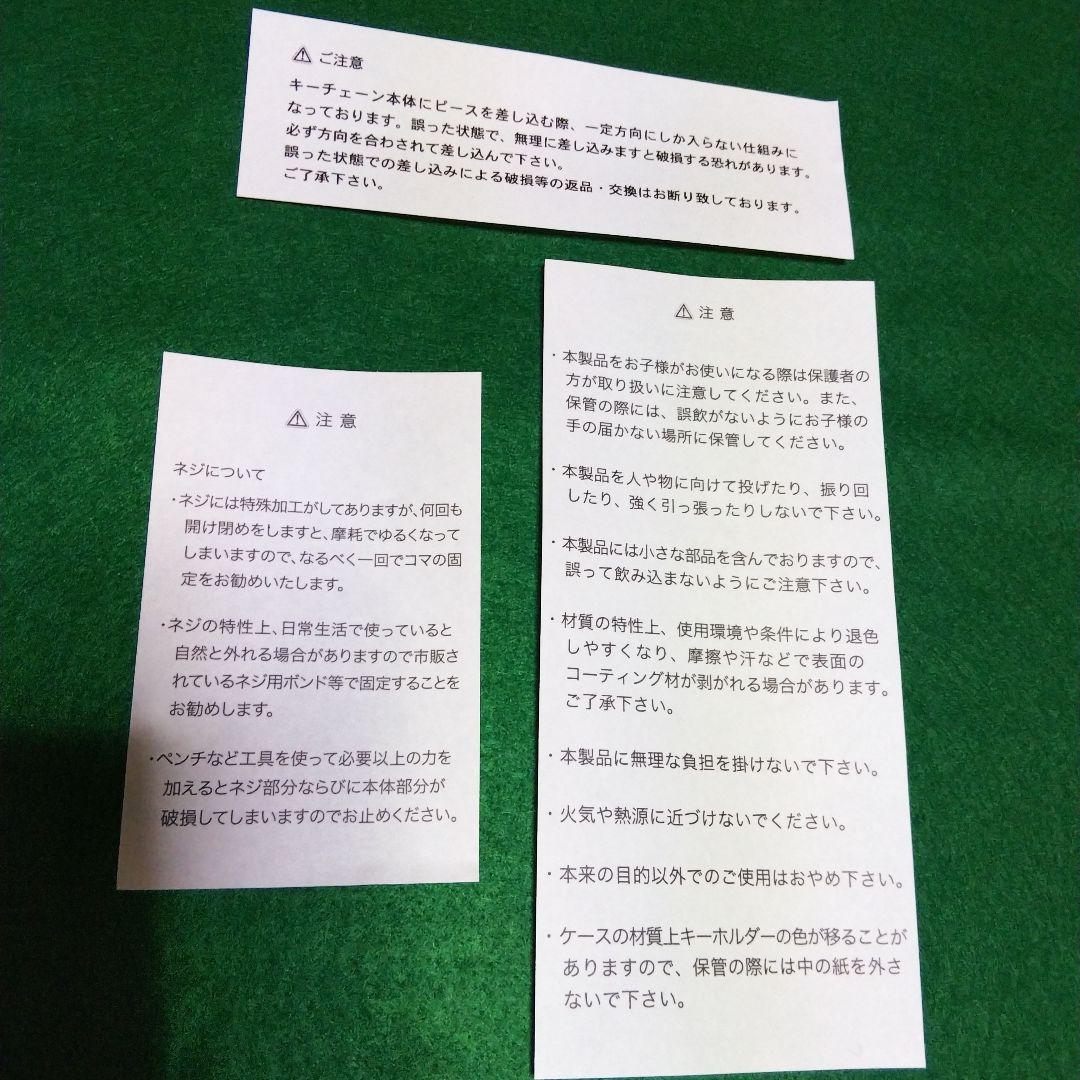 ⚠ ご注意
キーチェーン本体にピースを差し込む際、一定方向にしか入らない仕組みに
なっております。誤った状態で、無理に差し込みますと破損する恐れがあります。
必ず方向を合わされて差し込んで下さい。
誤った状態での差し込みによる破損等の返品・交換はお断り致しております。
ご了承下さい。
⚠ 注意
ネジについて
・ネジには特殊加工がしてありますが、何回も
開け閉めをしますと、摩耗でゆるくなって
しまいますので、なるべく一回でコマの固
定をお勧めいたします。
・ネジの特性上、日常生活で使っていると
自然と外れる場合がありますので市販さ
れているネジ用ボンド等で固定することを
お勧めします。
・ペンチなど工具を使って必要以上の力を
加えるとネジ部分ならびに本体部分が
破損してしまいますのでお止めください。
⚠ 注意
・本製品をお子様がお使いになる際は保護者の
方が取り扱いに注意してください。また、
保管の際には、誤飲がないようにお子様の
手の届かない場所に保管してください。
・本製品を人や物に向けて投げたり、振り回
したり、強く引っ張ったりしないで下さい。
・本製品には小さな部品を含んでおりますので、
誤って飲み込まないようにご注意下さい。
・材質の特性上、使用環境や条件により退色
しやすくなり、摩擦や汗などで表面の
コーティング材が剥がれる場合があります。
ご了承下さい。
・本製品に無理な負担を掛けないで下さい。
・火気や熱源に近づけないでください。
・本来の目的以外でのご使用はおやめ下さい。
・ケースの材質上キーホルダーの色が移ることが
ありますので、保管の際には中の紙を外さ
ないで下さい。